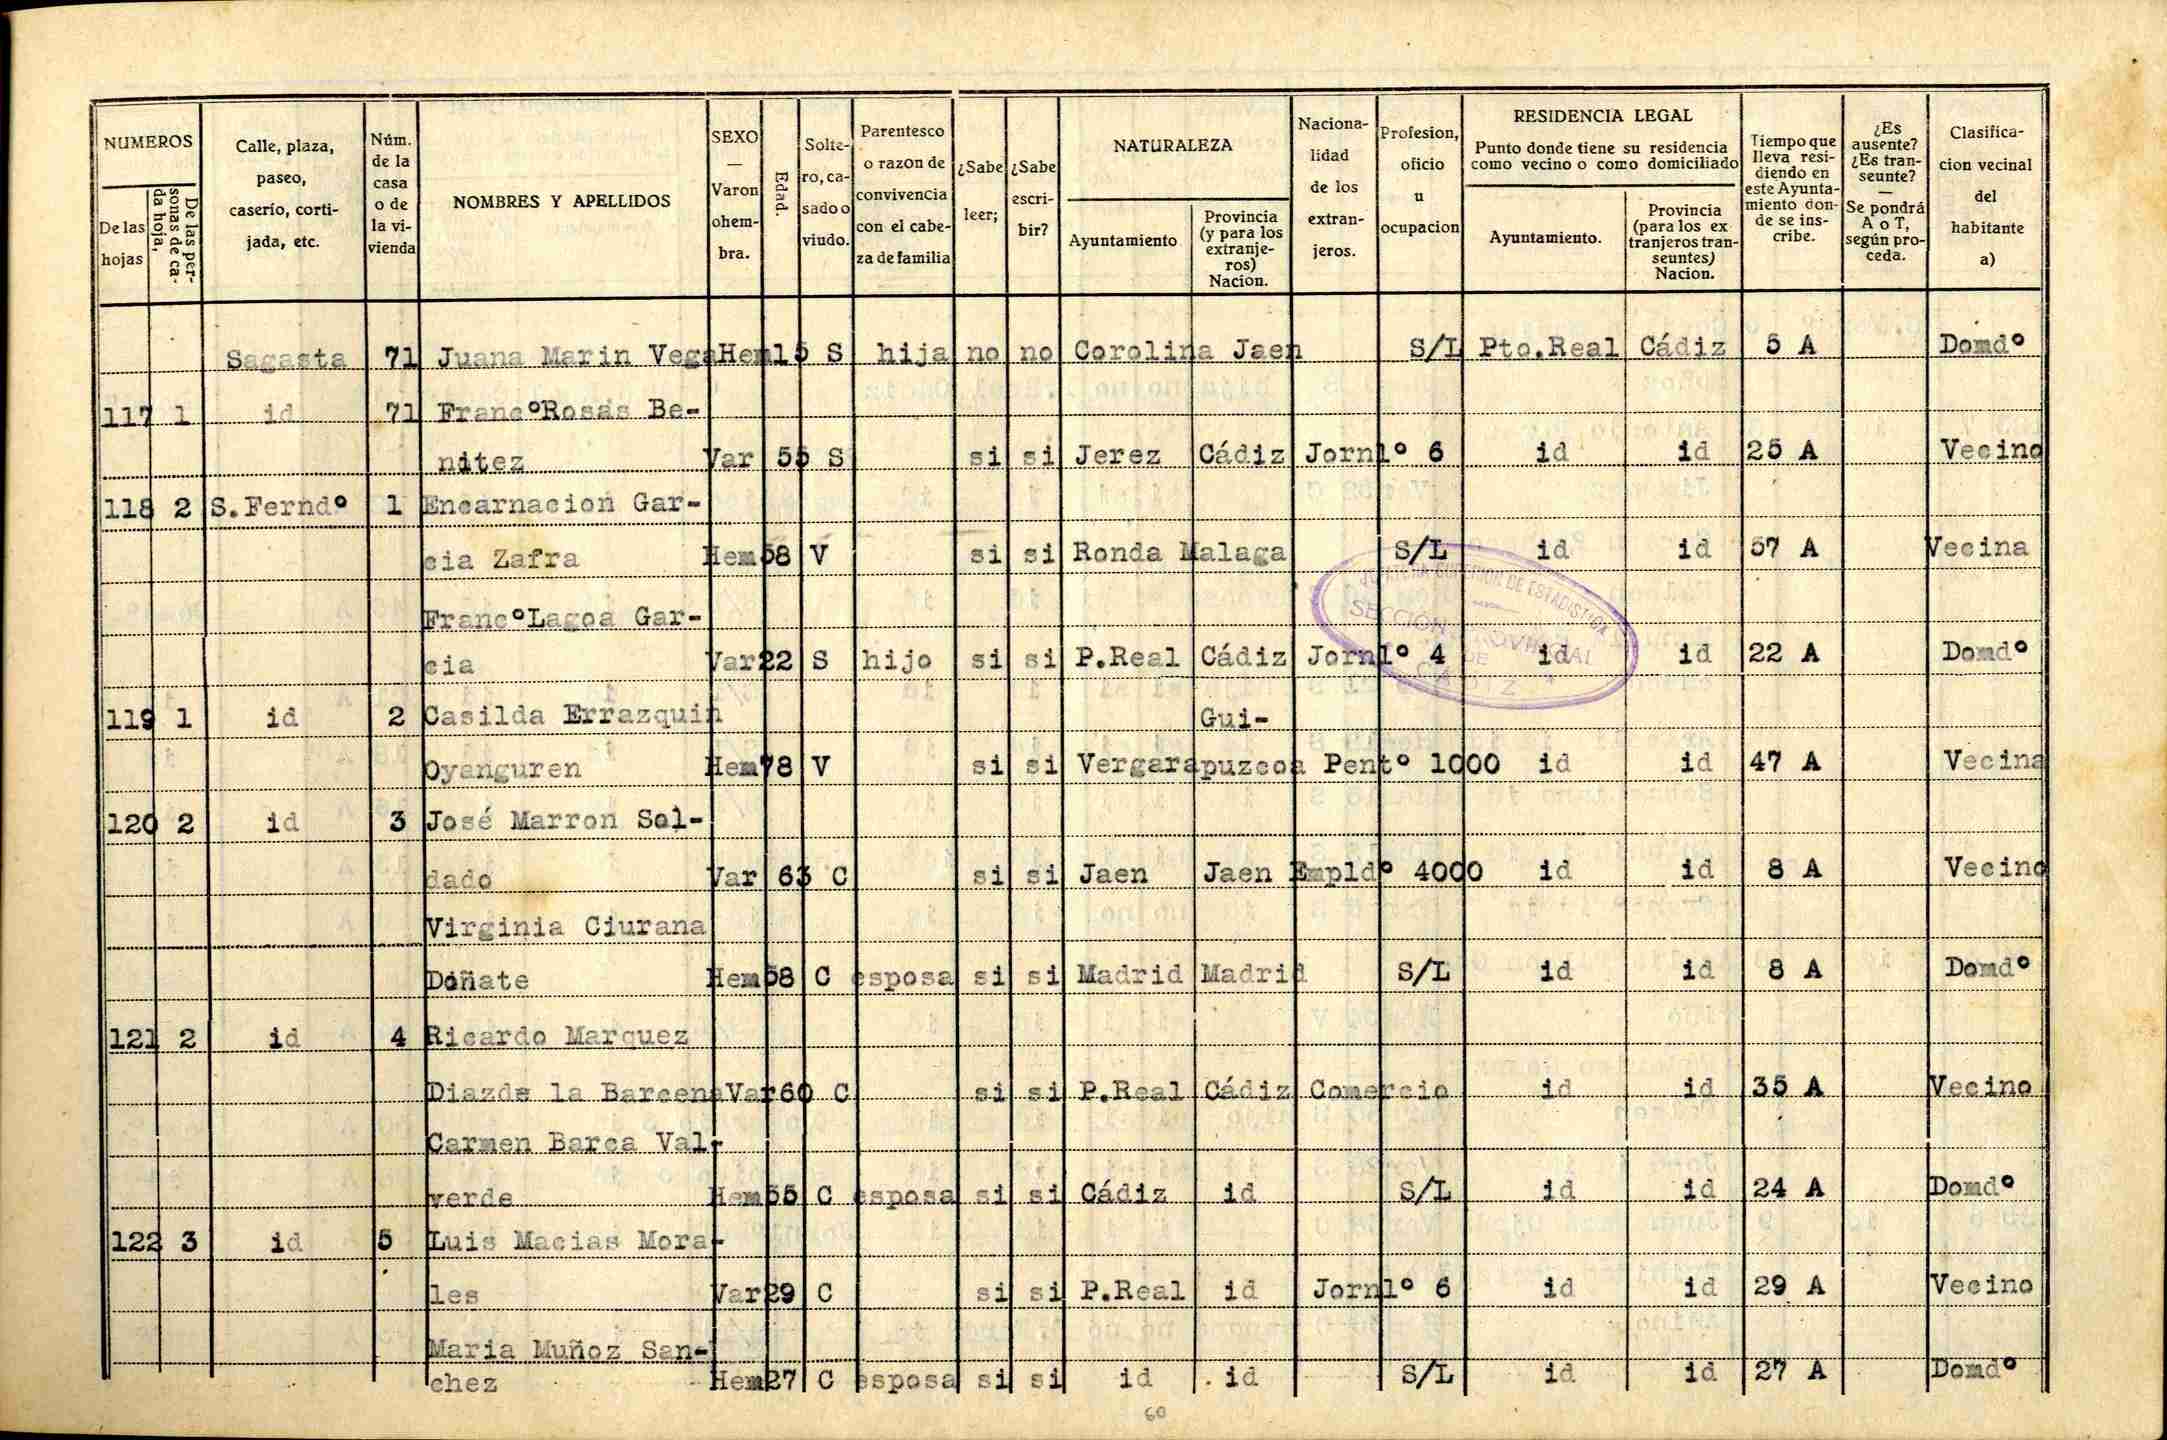 NUMEROS
De las hojas
De las personas de cada hoja,
Calle, plaza, paseo, caserío, cortijada, etc.
Núm. de la casa o de la vivienda
NOMBRES Y APELLIDOS
SEXO — Varon ohembra.
Edad.
Soltero, casado o viudo.
Parentesco o razon de convivencia con el cabeza de familia
¿Sabe leer;
¿Sabe escribir?
NATURALEZA
Ayuntamiento
Provincia (y para los extranjeros) Nacion.
Nacionalidad de los extranjeros.
Profesion, oficio u ocupacion
RESIDENCIA LEGAL
Punto donde tiene su residencia como vecino o como domiciliado
Ayuntamiento.
Provincia (para los extranjeros transeuntes) Nacion.
Tiempo que lleva residiendo en este Ayuntamiento donde se inscribe.
¿Es ausente? ¿Es transeunte? — Se pondrá A o T, según proceda.
Clasificacion vecinal del habitante a)
Sagasta 71 Juana Marin Vega Hem 15 S hija no no Corolina Jaen S/L Pto.Real Cádiz 5 A Domdº
117 1 id 71 FrancºRosas Be-
nitez Var 55 S si si Jerez Cádiz Jornlº 6 id id 25 A Vecino
118 2 S.Ferndº 1 Encarnacion Gar-
cia Zafra Hem 58 V si si Ronda Malaga S/L id id 57 A Vecina
FrancºLagoa Gar-
cia Var 22 S hijo si si P.Real Cádiz Jornlº 4 id id 22 A Domdº
119 1 id 2 Casilda Errazquin Gui-
Oyanguren Hem 78 V si si Vergara puzcoa Pentº 1000 id id 47 A Vecina
120 2 id 3 José Marron Sol-
dado Var 63 C si si Jaen Jaen Empldº 4000 id id 8 A Vecino
Virginia Ciurana
Doñate Hem 58 C esposa si si Madrid Madrid S/L id id 8 A Domdº
121 2 id 4 Ricardo Marquez
Diazde la Barcena Var 60 C si si P.Real Cádiz Comercio id id 35 A Vecino
Carmen Barca Val-
verde Hem 55 C esposa si si Cádiz id S/L id id 24 A Domdº
122 3 id 5 Luis Macias Mora-
les Var 29 C si si P.Real id Jornlº 6 id id 29 A Vecino
Maria Muñoz San-
chez Hem 27 C esposa si si id id S/L id id 27 A Domdº
JEFATURA SUPERIOR DE ESTADISTICA
SECCIÓN PROVINCIAL
DE
CADIZ
60